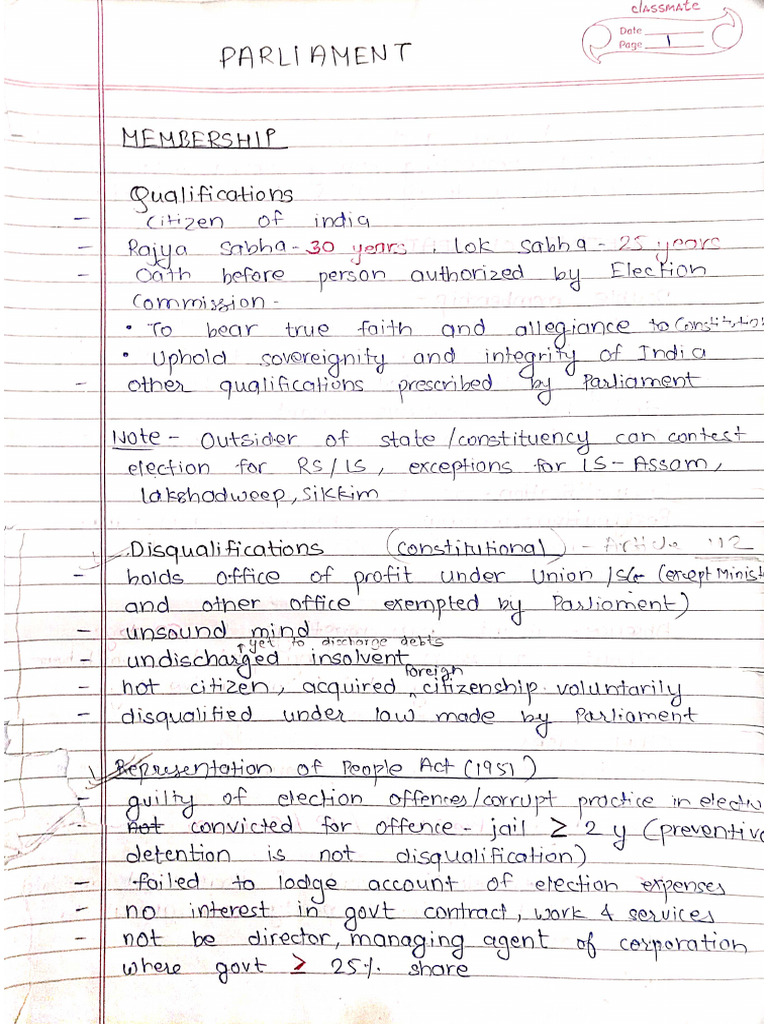 classmate
Date
Page 1
PARLIAMENT
MEMBERSHIP
Qualifications
- Citizen of india
- Rajya Sabha - 30 years, Lok Sabha - 25 years
- Oath before person authorized by Election
Commission -
• To bear true faith and allegiance to Constitution
• Uphold sovereignity and integrity of India
- other qualifications prescribed by Parliament
Note - Outsider of state/constituency can contest
election for RS/LS, exceptions for LS - Assam,
Lakshadweep, Sikkim
Disqualifications (constitutional) - Article
- holds office of profit under Union / (except Minist
and other office exempted by Parliament)
- unsound mind
↑ yet to discharge debts
- undischarged insolvent
- not citizen, acquired foreign citizenship voluntarily
- disqualified under law made by Parliament
Representation of People Act (1951)
- guilty of election offences/corrupt practice in electi
- Not convicted for offence - jail ≥ 2 y (preventive
detention is not disqualification)
- failed to lodge account of election expenses
- no interest in govt contract, work & services
- not be director, managing agent of corporation
where govt ≥ 25% share